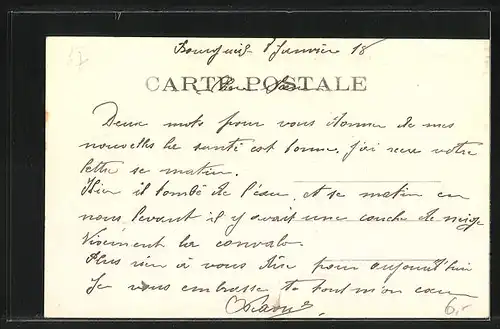 Bourgueil 8 Janvier 18
CARTE POSTALE
Deux mots pour vous donner de mes
nouvelles la santé est bonne. j'ai recu votre
lettre se matin.
Hier il tombé de l'eau, et se matin en
nous levant il y avait une couche de neige
Vivement la convalo.
Plus rien à vous dire pour aujourd'hui
Je vous embrasse to tout mon cœur
6,-